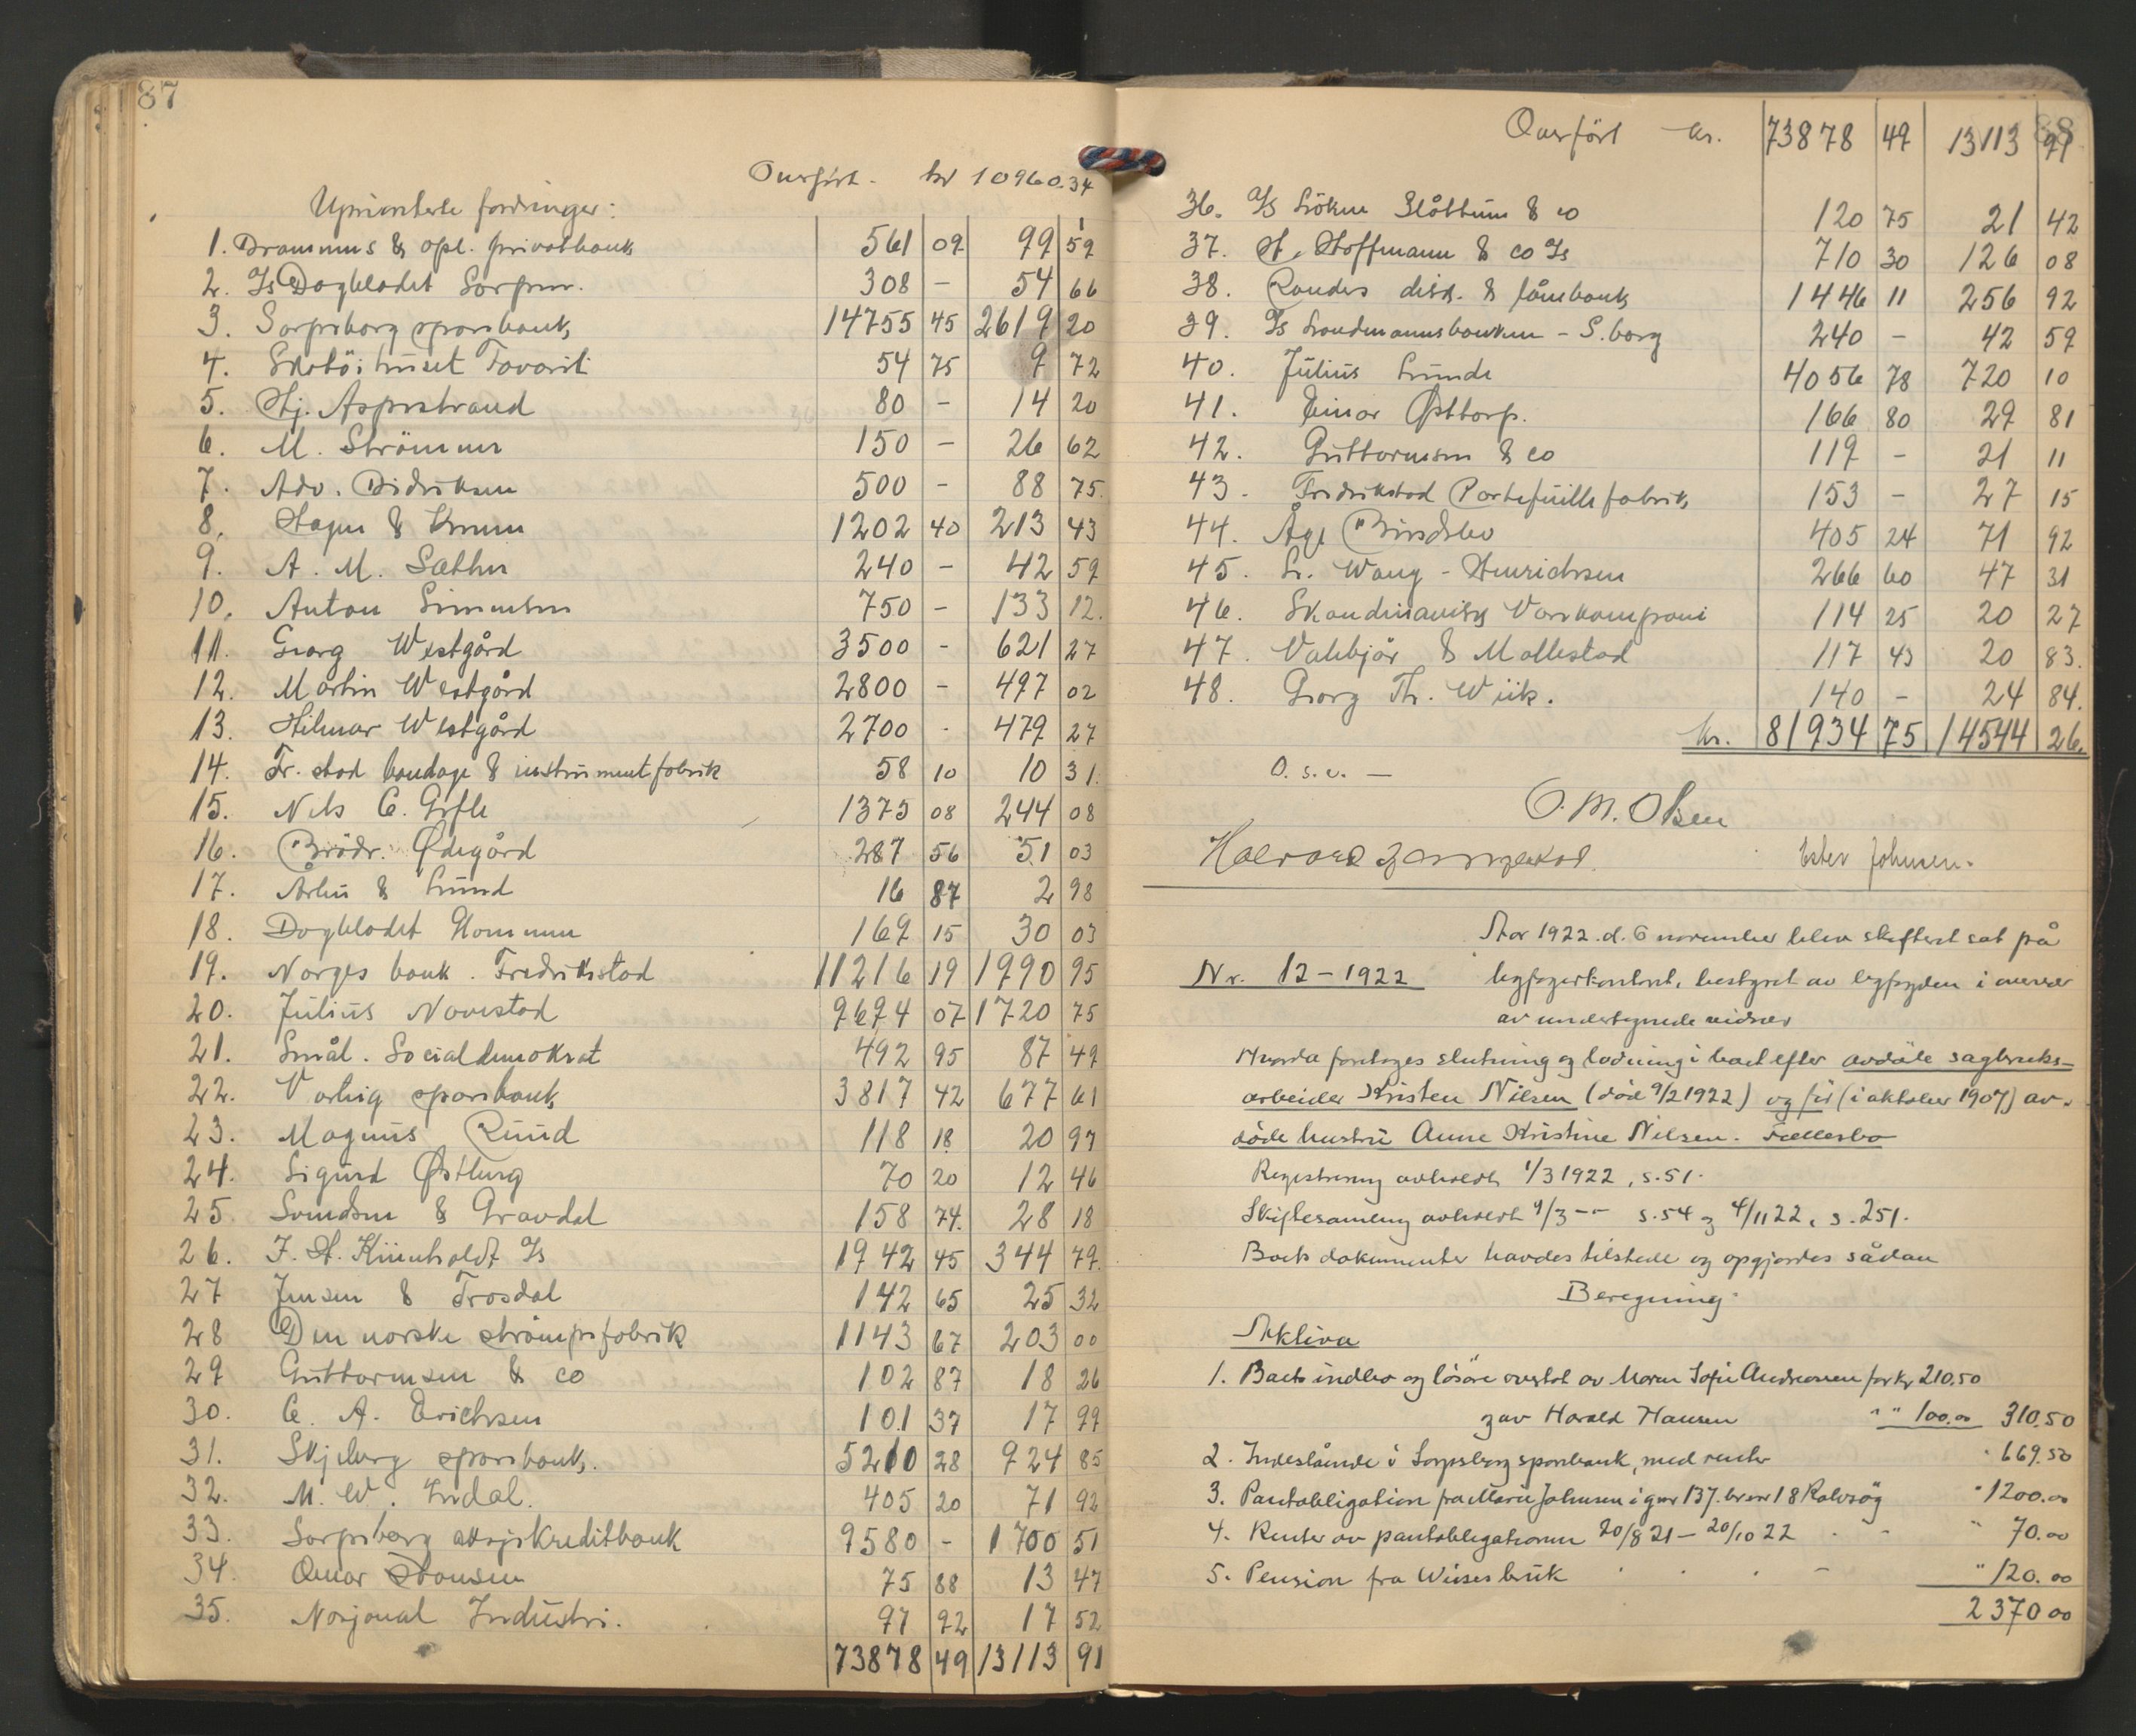 87
Overført - kr 10960.34
Uprioriterte fordringer:
1. Drammens & opl. privatbank 561 09 99 59
2. A/s Dagbladet Sarpen. 308 - 54 66
3. Sarpsborg sparebank 14755 45 2619 20
4. Skotöihuset Favorit 54 75 9 72
5. Hj. Asperstrand 80 - 14 20
6. M. Strömmer 150 - 26 62
7. Adv. Didriksen 500 - 88 75.
8. Hagen & 1202 40 213 43
9. A. M. Sæther 240 - 42 59
10. Anton Simensen 750 - 133 12.
11. Georg Westgård 3500 - 621 27
12. Martin Westgård 2800 - 497 02
13. Hilmar Westgård 2700 - 479 27
14. Fr. stad bandage & instrumentfabrik 58 10 10 31.
15. Nels C. 1375 08 244 08
16. Brödr. Ødegård 287 56 51 03
17. & Lund 16 87 2 98
18. Dagbladet 169 15 30 03
19. Norges bank. Fredriksstad 11216 19 1990 95
20. Julius Navestad 9694 07 1720 75
21. Smål. Socialdemokrat 492 95 87 49
22. Varteig sparebank 3817 42 677 61
23. Magnus Ruud 118 18 20 97
24. Sigurd Østberg 70 20 12 46
25. Svendsen & Gravdal 158 74. 28 18
26. F. H. Küenholdt A/s 1942 45 344 79.
27 Jensen & Trosdal 142 65 25 32
28 Den norske strömpefabrik 1143 67 203 00
29 Guttormsen & co 102 87 18 26
30. C. A. Erichsen 101 37 17 99
31. Skjeberg sparebank. 5210 28 924 85
32. M. W. Indal. 405 20 71 92
33. Sarpsborg aksjekreditbank 9580 - 1700 51
34. Hansen 75 88 13 47
35. Nasjonal Industri. 97 92 17 52
73878 49 13113 91
88
Overført kr. 73878 49 13113 91
36. A/s Löken Slåttum & co 120 75 21 42
37. H. Hoffmann & co A/s 710 30 126 08
38. Randers disk. & lånebank 1446 11 256 92
39. A/s Landmannsbanken - S.borg 240 - 42 59
40. Julius Lunde 4056 78 720 10
41. Einar Østtorp. 166 80 29 81
42. Guttormsen & co 119 - 21 11
43. Fredrikstad Portefüillefabrik 153 - 27 15
44. Åge Bindslev 405 24 71 92
45. L. Wang - Henrichsen 266 60 47 31
46. Skandinavisk Varekompani 114 25 20 27
47. & Mollestad 117 43 20 83.
48. Georg Th. Wiik. 140 - 24 84.
kr. 81934 75 14544 26.
O. s. v. —
O. M. Olsen
Ester Johnsen.
Aar 1922. d. 6 november blev skifteret sat på
Nr. 12 - 1922 byfogdkontoret, bestyret av byfogden i overvær
av undertegnede vidner
Hvorda foretages slutning og lodning i boet efter avdøde sagbruks-
arbeider Kristen Nilsen (död 9/2 1922) og før (i oktober 1907) av-
døde hustru Anne Kristine Nilsen. Fællesbo
Registrering avholdt 1/3 1922, s. 51.
Skiftesamling avholdt 9/3 -- s. 54 og 4/11 22, s. 251.
Boets dokumenter havdes tilstede og opgjordes sådan
Beregning
Aktiva
1. Boets indbo og løsøre overtat av Maren Sofie Andreassen for kr 210.50
og av Harald Hansen " " 100.00 310.50
2. Indestående i Sarpsborg sparebank, med renter " 669.50
3. Pantobligation fra Marie Johnsen i gnr 137. br nr 18 Kalvsøg " 1200.00
4. Renter av pantobligationen 20/8 21 - 20/10 22 " 70.00
5. Pension fra Wiises bruk " 120.00
2370 00